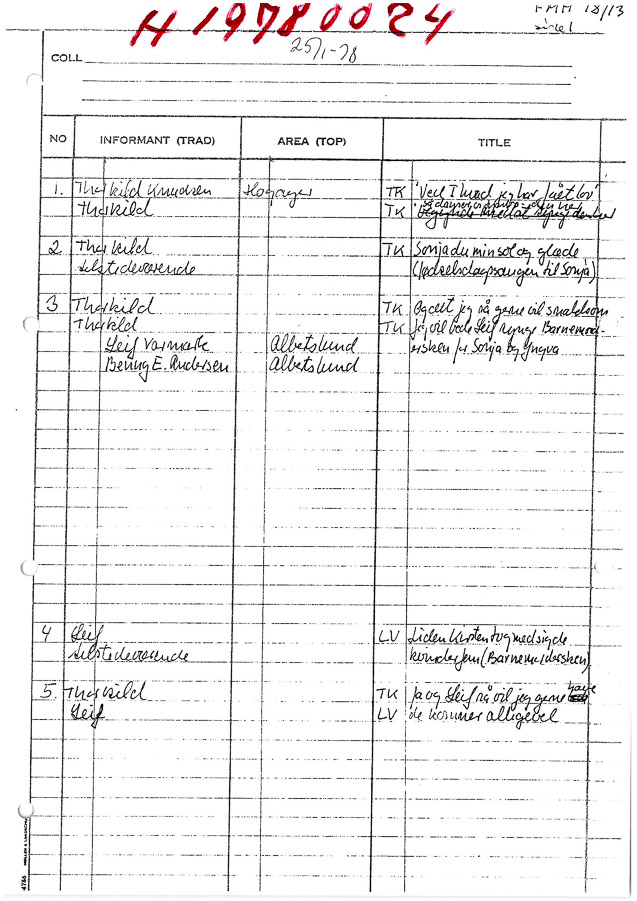 H 19780024
FMM 18/13
side 1
25/1-78
COLL
NO INFORMANT (TRAD) AREA (TOP) TITLE
1. Thorkild Knudsen Hogager TK "Ved I hvad jeg har fået lov
Thorkild TK
2 Thorkild TK Sonja du min sol og glæde
tilstedeværende (fødselsdagssangen til Sonja)
3 Thorkild TK Og det jeg så gerne vil
Thorkild TK Jeg vil bede Leif synge Barnemord-
Leif Varmark Albetslund ersken for Sonja og Yngva
Benny E. Andersen Albetslund
4 Leif LV Liden Kirsten tog med sig de
tilstedeværende (Barnemordersken)
5. Thorkild TK Ja og Leif så vil jeg gerne have
Leif LV de kommer alligevel
4786